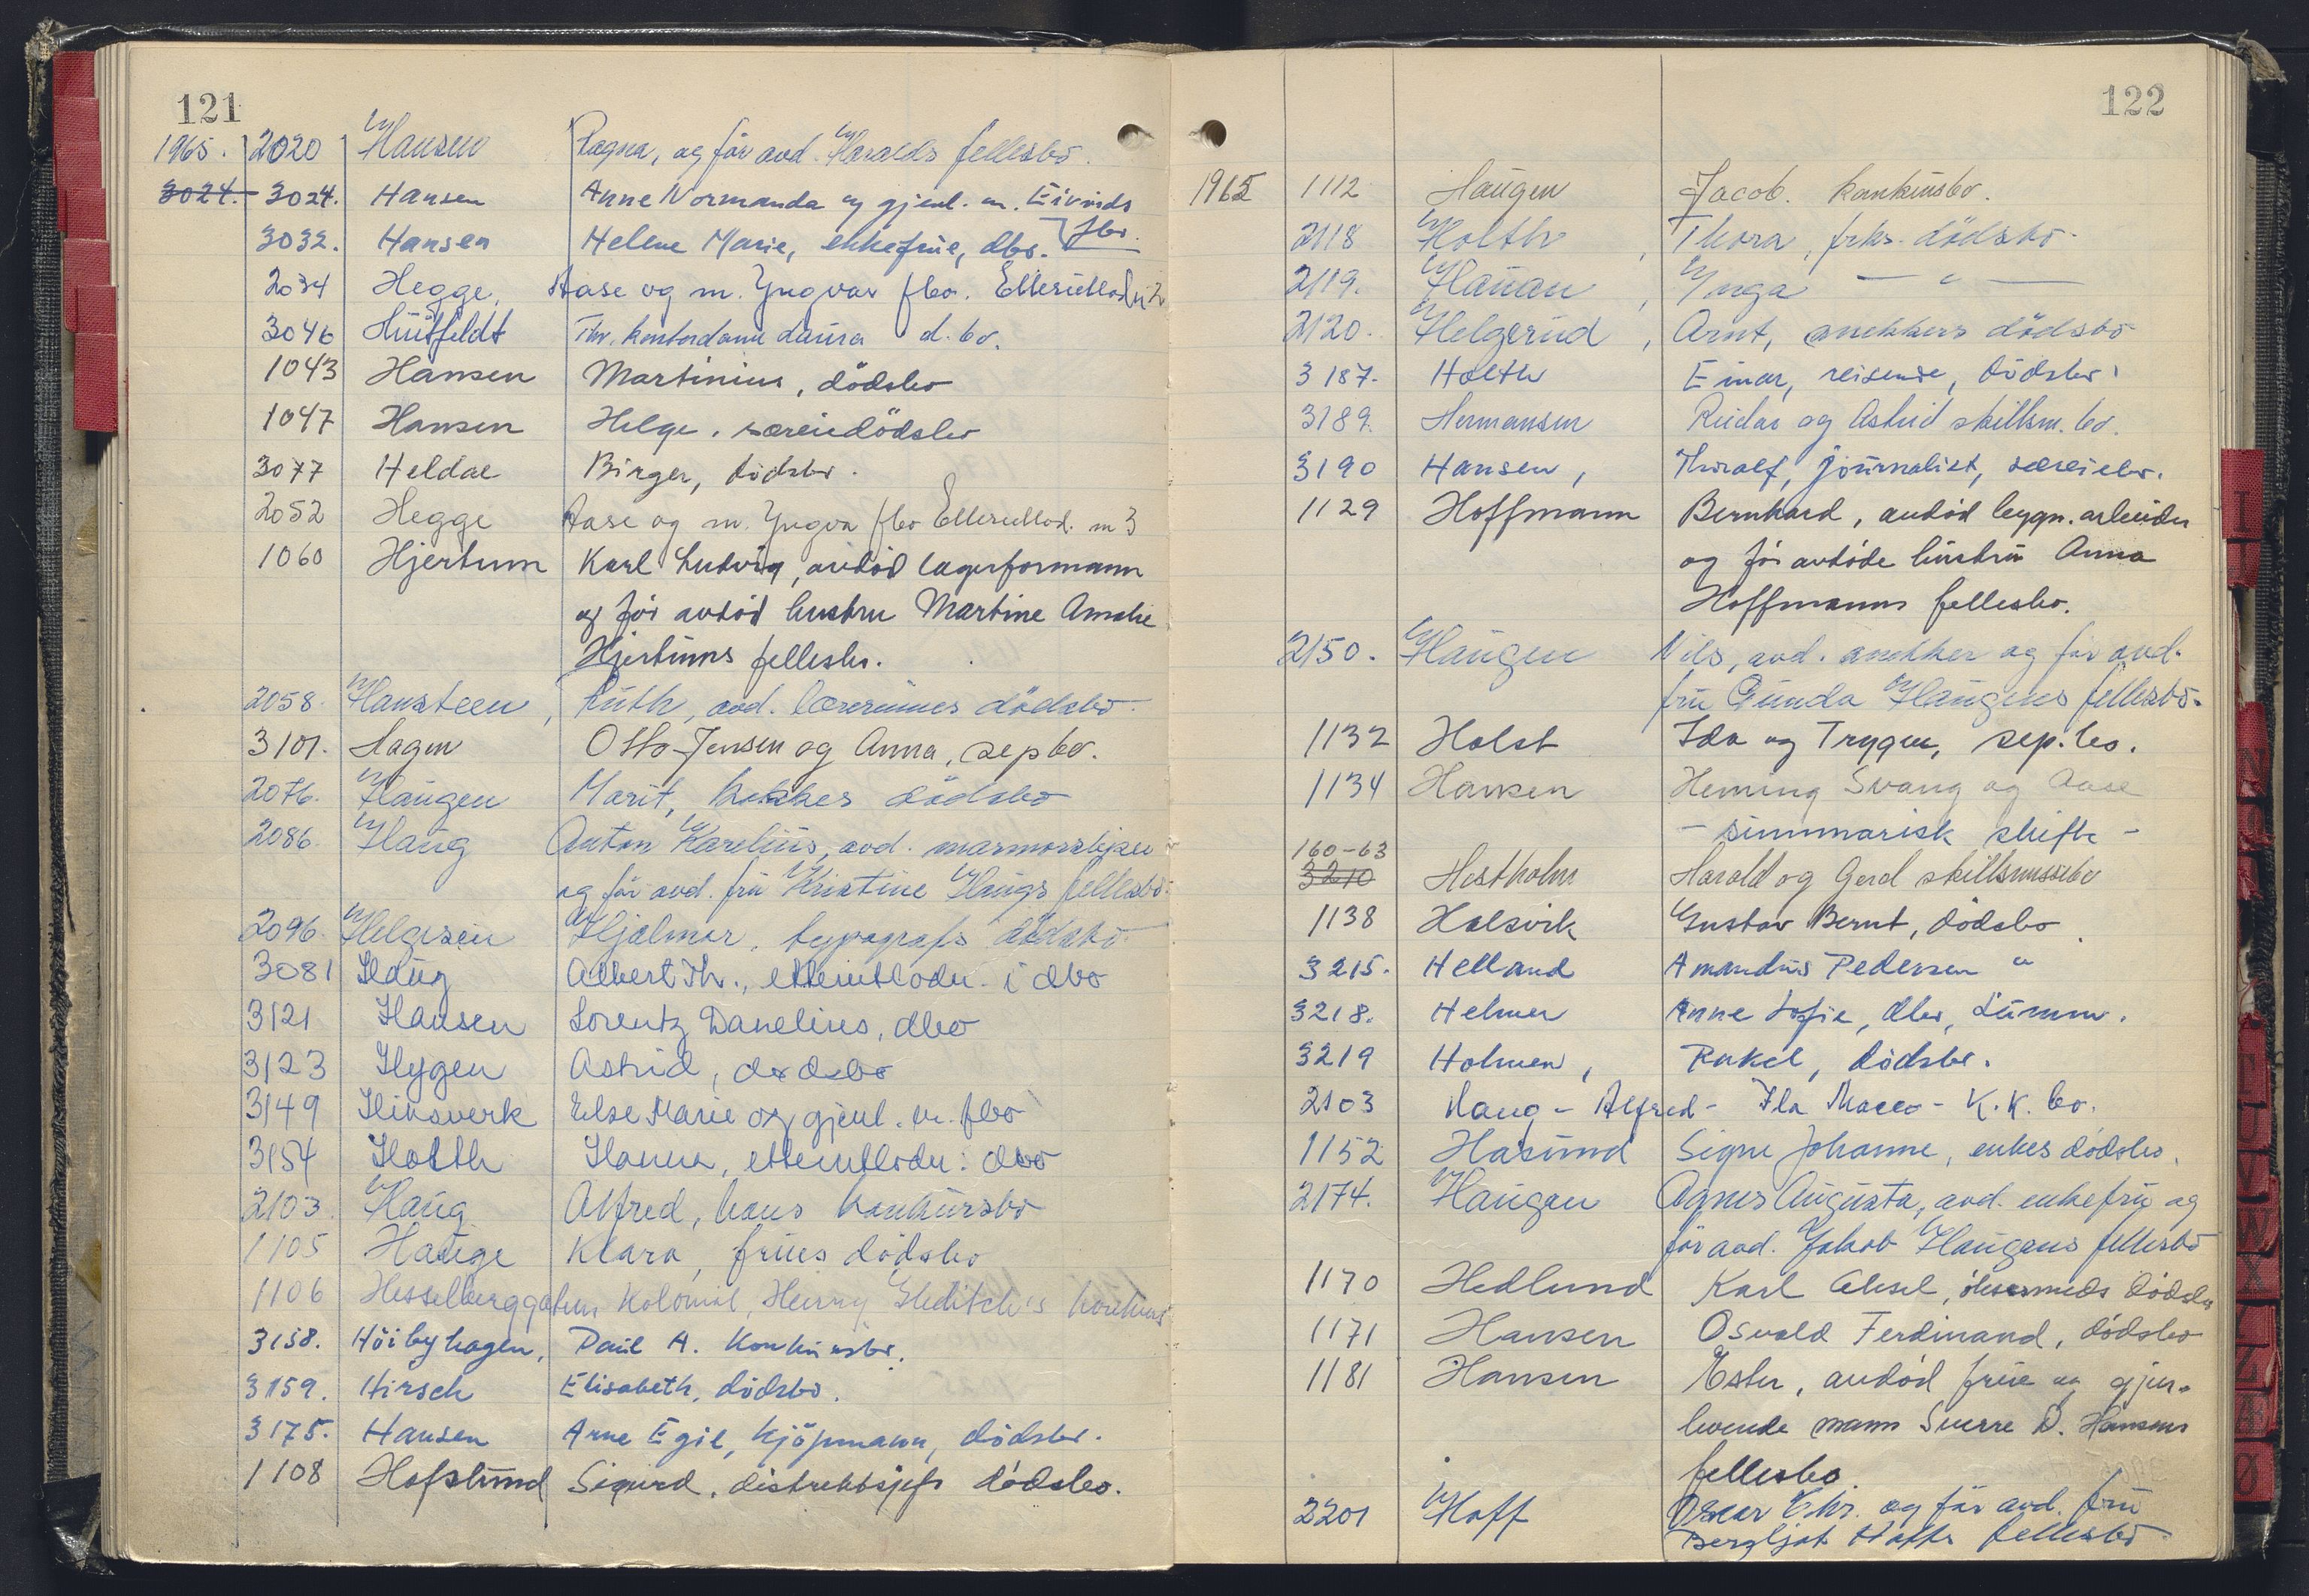 121
1965. 2020 Hansen Ragna, og før avd. Haralds fellesbo.
3024. 3024. Hansen Anne Normanda og gjenl. m. Eivinds
fbo.
3032. Hansen Helene Marie, enkefrue, dbo.
2034 Hegge, Aase og m. Yngvar fbo. Etterutlodn 2
3046 Huitfeldt Thv. kontordame Laura d.bo.
1043 Hansen Martinius, dödsbo
1047 Hansen Helge, særeiedödsbo
3077 Heldal Birger, dödsbo.
2052 Hegge Aase og m. Yngva fbo Etterutlod. nr 3
1060 Hjertum Karl Ludvig, avdöd lagerformann
og för avdöd hustru Martine Amalie
Hjertums fellesbo.
2058. Hansteen, Ruth, avd. lærerinnes dödsbo.
3101. Hagen Otto-Jensen og Anna, sepbo.
2076. Haugen Marit, kokkes dödsbo
2086. Haug Anton Karelius, avd. marmorsliper
og för avd. fru Kristine Haugs fellesbo.
2096. Helgesen Hjalmar, typografs dödsbo.
3081 Haug Albert Th., etterutlodn. i dbo
3121 Hansen Lorentz Danelius, dbo
3123 Hygen Astrid, dødsbo
3149 Hiksverk Else Marie og gjenl. m. fbo
3154 Holth Hanna, etterutlodn: dbo
2103 Haug Alfred, hans konkursbo
1105 Hauge Klara, frues dödsbo
1106 Hesselberggatens Kolonial, Henny Gleditch's konkurs
3158. Höibyhagen, Paul A. Konkursbo.
3159. Hirsch Elisabeth, dödsbo.
3175. Hansen Arne Egil, kjöpmann, dödsbo.
1108 Hofslund Sigurd, distriktsjefs dödsbo.
122
1965 1112 Haugen Jacob. konkursbo.
2118 Holth, Thora, frks. dödsbo.
2119. Hauan, Ynga — " —
2120. Helgerud, Arnt, snekkers dödsbo
3187. Holth Einar, reisende, dödsbo.
3189. Hermansen Reidar og Astrid skillsm. bo.
3190 Hansen, Thoralf, journalist, særeiebo.
1129 Hoffmann Bernhard, avdöd bygn. arbeider
og för avdöde hustru Anna
Hoffmanns fellesbo.
2150. Haugen Nils, avd. snekker og för avd.
fru Gunda Haugens fellesbo.
1132 Holst Ida og Trygve, sep.bo.
1134 Hansen Heming Svang og Aase
- summarisk skifte -
160-63
3210 Hestholm Harald og Gerd skillsmissebo
1138 Halsvik Gustav Bernt, dödsbo
3215. Helland Amandus Pedersen "
3218. Helmer Anne Sofie, dbo, summ.
3219 Holmen, Rakel, dödsbo.
2103 Haug - Alfred - Ila Macco - K.K. bo.
1152 Hasund Signe Johanne, enkes dödsbo.
2174. Haugen Agnes Augusta, avd. enkefru og
för avd. Jakob Haugens fellesbo
1170 Hedlund Karl Aksel, dödsbo
1171 Hansen Osvald Ferdinand, dödsbo
1181 Hansen Ester, avdöd frue og gjen-
levende mann Sverre D. Hansens
fellesbo.
2201 Hoff Oskar Chr. og för avd. fru
Bergljot Hoffs fellesbo